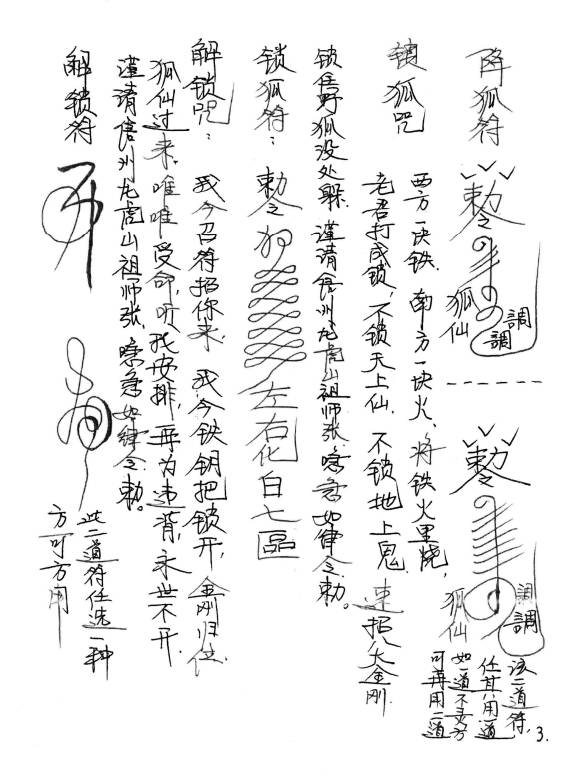 降狐符
勅令
狐仙
調
調
勅令
狐仙
調
調
该二道符，
任其用一道
如一道不灵方
可再用二道
锁狐咒
西方一块铁，南方一块火、将铁火里烧，
老君打成锁，不锁天上仙，不锁地上鬼，速招八大金刚
锁住野狐没处躲。谨请信州龙虎山祖师张，急急如律令勅。
锁狐符：
勅令
左右化白七區
解锁咒：
我今召符招你来，我今铁钥把锁开，金刚归位，
狐仙过来，唯唯受命，听我安排，再为违背，永世不开，
谨请信州龙虎山祖师张，急急如律令勅。
解锁符
此二道符任选一种
方可方用
3.